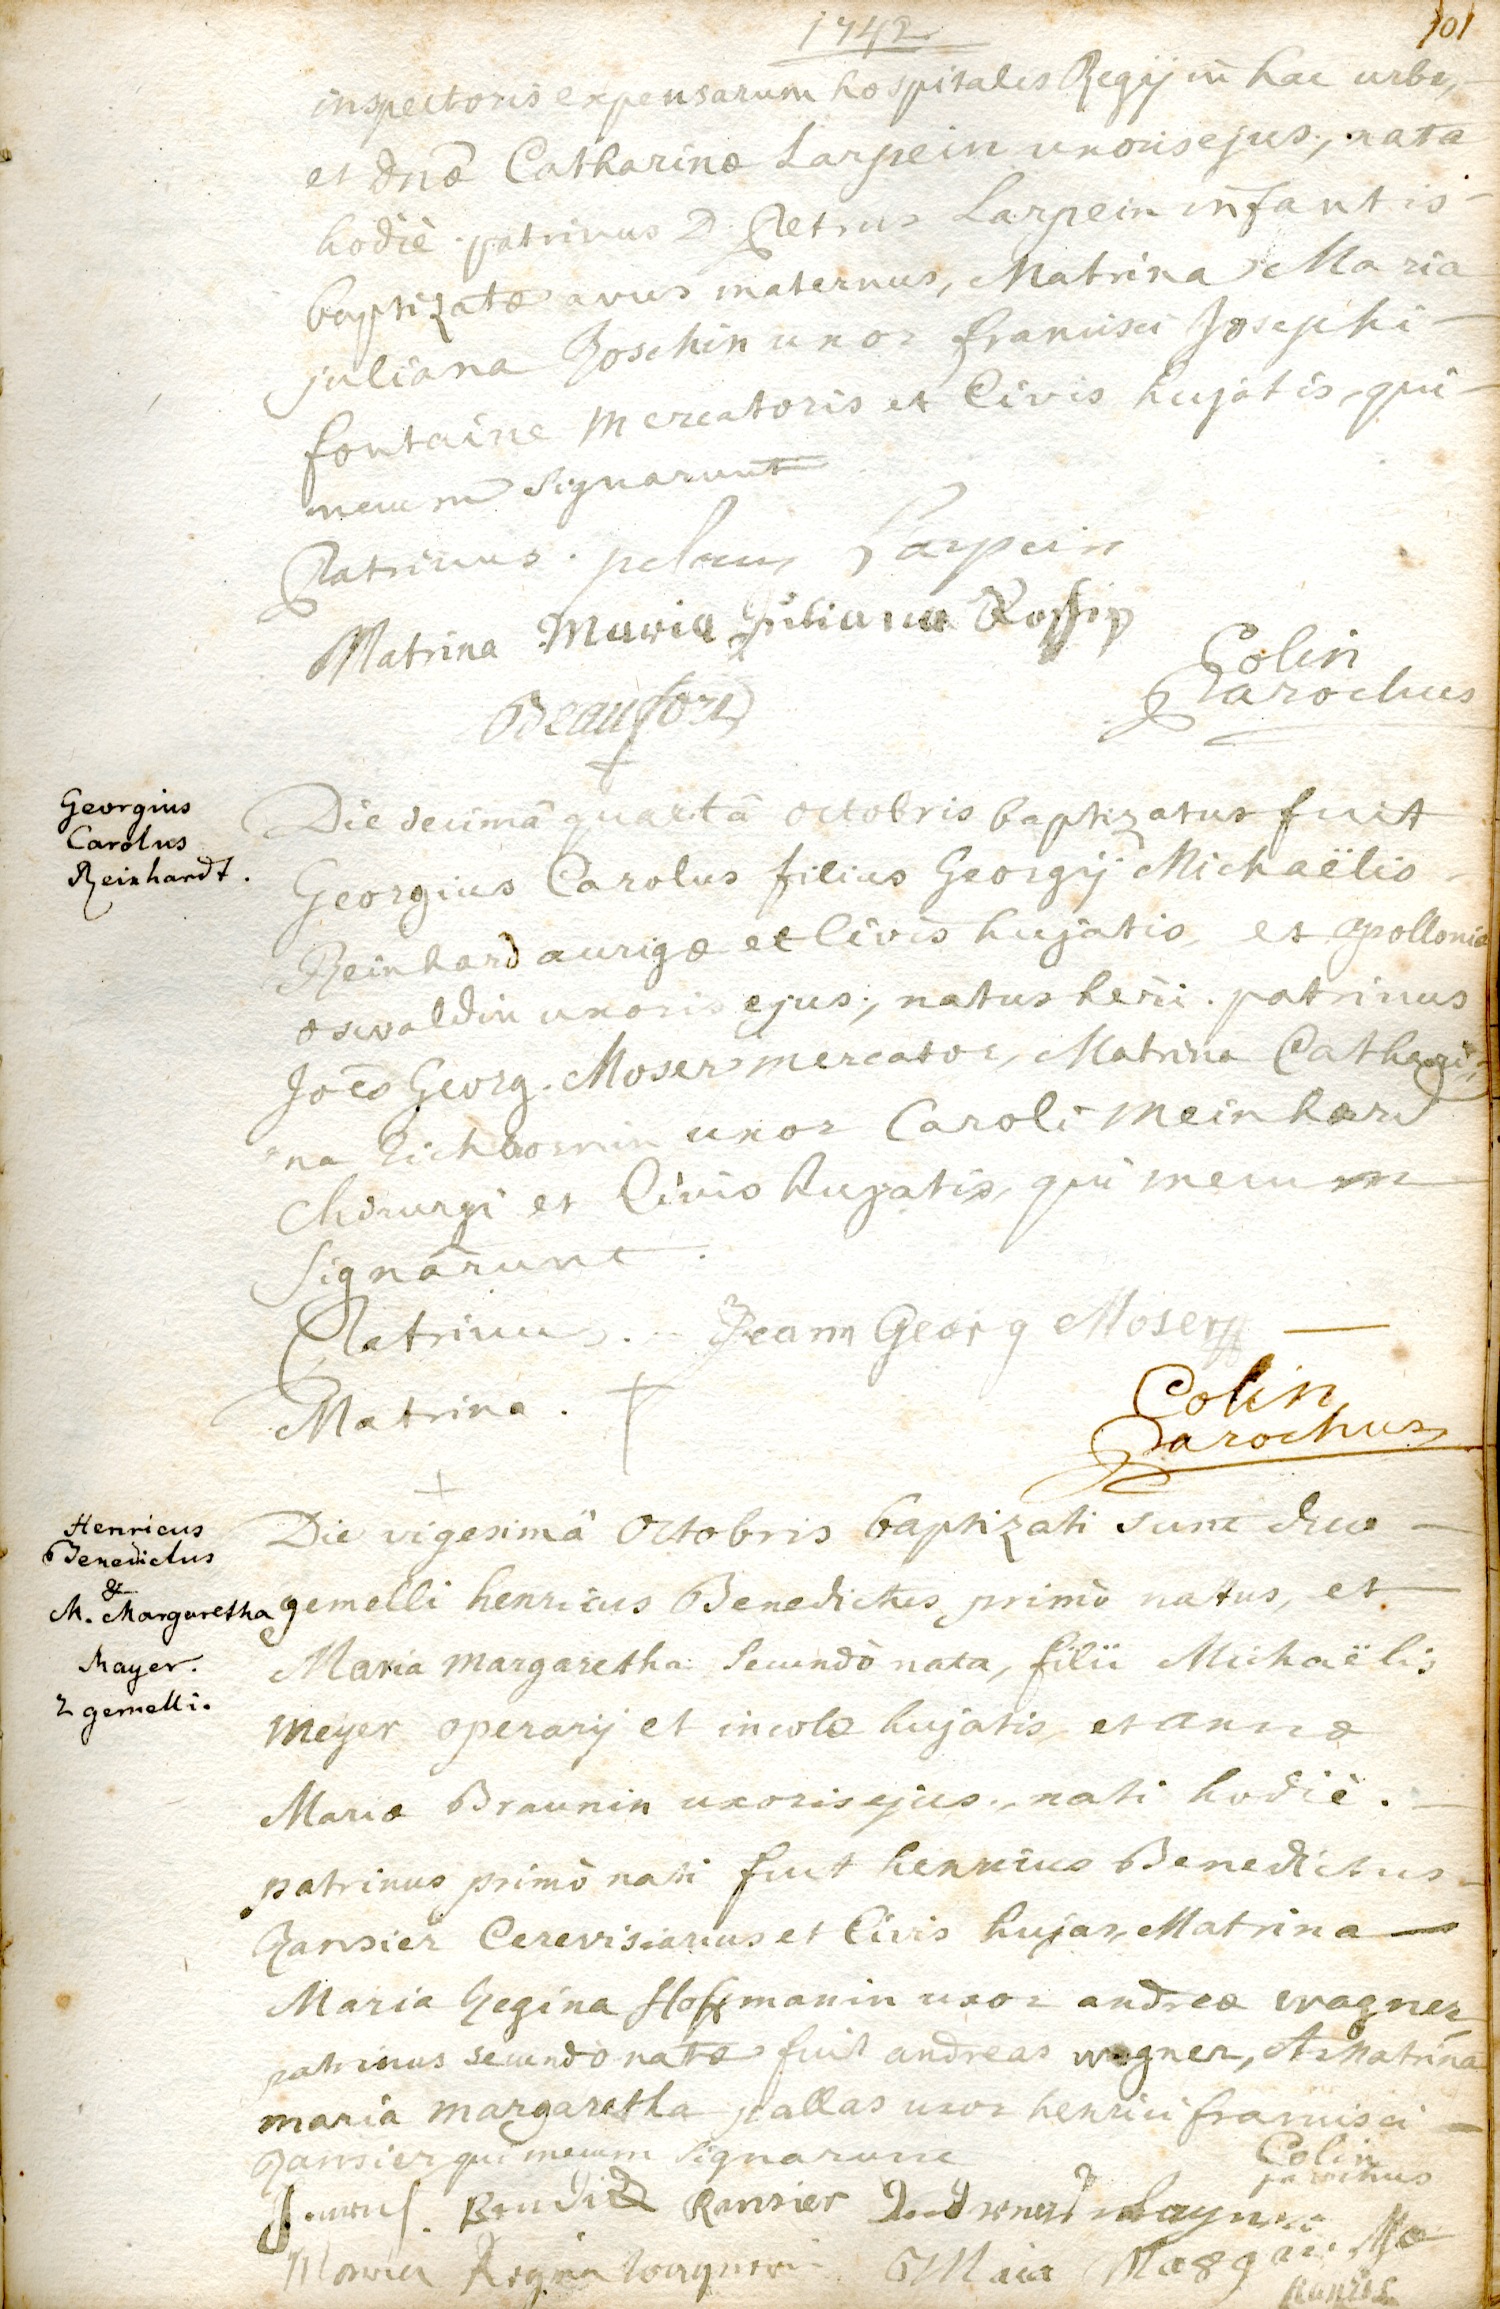 1742
101
inspectoris expensarum hospitalis Regij in hac urbe,
et dnæ Catharinæ Larpein uxoris ejus, nata
hodiè. patrinus D. Petrus Larpein infantis
baptizatæ avus maternus, Matrina Maria
juliana Roschin uxor francisci Josephi
fontaine mercatoris et Civis hujatis, qui
mecum signarunt
Patrinus. Larpein
Matrina Maria Juliana
Beaufort
Colin
Parochus
Georgius
Carolus
Reinhardt.
Die decimâ quartâ octobris baptizatus fuit
Georgius Carolus filius Georgij Michaëlis
Reinhard aurigæ et Civis hujatis, et apollonia
oswaldin uxoris ejus, natus heri. patrinus
Joēs Georg. Moser mercator, Matrina Cathari,,
na Eichhornin uxor Caroli Meinhard
Chirurgi et Civis hujatis, qui mecum
signârunt.
Patrinus. Jeam Georg Moser
Matrina. †
Colin
Parochus
Henricus
Benedictus
&
M. Margaretha
Mayer.
2 gemelli.
Die vigesimâ octobris baptizati sunt duo
gemelli henricus Benedictus primò natus, et
Maria Margaretha secundò nata, filii Michaëlis
Meyer operarij et incolæ hujatis, et annæ
Mariæ Braunin uxoris ejus, nati hodiè.
patrinus primò nati fuit henricus Benedictus
Ransier Cerevisiarius et Civis hujas, Matrina
Maria Regina Hoffmanin uxor andreæ wagner,
patrinus secundò natæ fuit andreas wagner, Matrina
maria margaretha pallas uxor henrici francisci
Ransier qui mecum signarunt
Colin
parochus
Ransier
Maria Regina
Maria